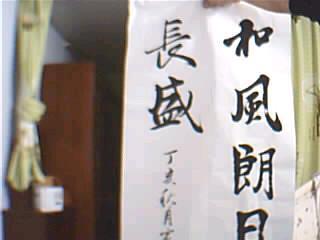 和風朗月
長盛
丁亥秋月